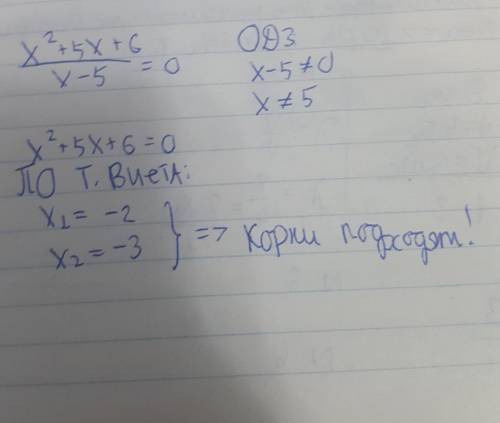 x²+5x+6 / x-5 = 0
ОДЗ
x-5≠0
x≠5
x²+5x+6=0
ПО Т. Виета:
x1 = -2
x2 = -3
} => Корни подходят!